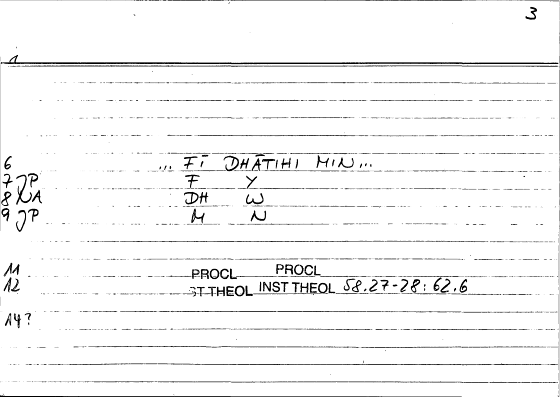 3
1
6 ... FĪ DHĀTIHI MIN...
7 JP F Y
8 NA DH W
9 JP M N
11 PROCL PROCL
12 ST THEOL INST THEOL 58.27-28: 62.6
14?